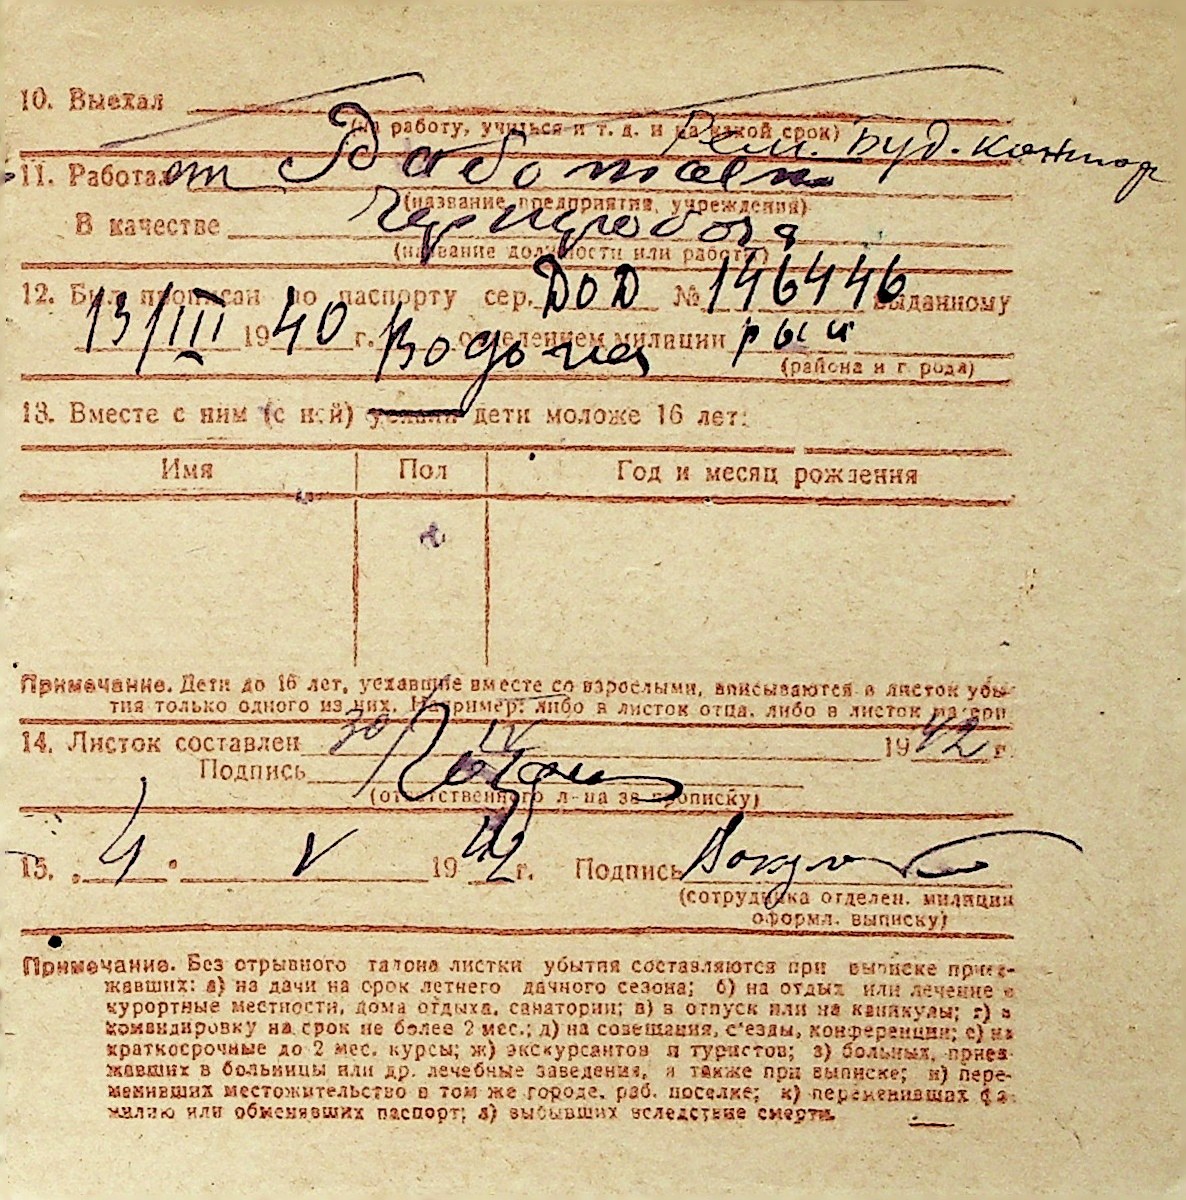 10. Выехал
(на работу, учиться и т. д. и на какой срок)
Рем. Буд. контор
11. Работал
(название предприятия, учреждения)
В качестве
(название должности или работы)
12. Был прописан по паспорту сер. ДОД № 146446 выданному
13/III 1940 г. отделением милиции
(района и города)
13. Вместе с ним (с ней) уехали дети моложе 16 лет:
Имя Пол Год и месяц рождения
Примечание. Дети до 16 лет, уехавшие вместе со взрослыми, вписываются в листок убы-
тия только одного из них. Например: либо в листок отца, либо в листок матери
14. Листок составлен 30/IV 1942 г.
Подпись
(ответственного л-на за прописку)
15. „ 4 " V 1942 г. Подпись
(сотрудника отделен. милиции
оформл. выписку)
Примечание. Без отрывного талона листки убытия составляются при выписке приез-
жавших: а) на дачи на срок летнего дачного сезона; б) на отдых или лечение в
курортные местности, дома отдыха, санатории; в) в отпуск или на каникулы; г) в
командировку на срок не более 2 мес.; д) на совещания, с'езды, конференции; е) на
краткосрочные до 2 мес. курсы; ж) экскурсантов и туристов; з) больных, приез-
жавших в больницы или др. лечебные заведения, а также при выписке; и) пере-
менивших местожительство в том же городе, раб. поселке; к) переменивших фа-
милию или обменявших паспорт; л) выбывших вследствие смерти.